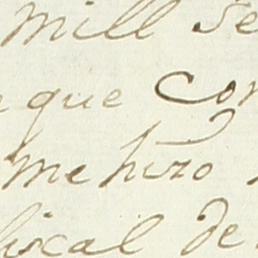 mill se
que con
me hizo
fiscal de